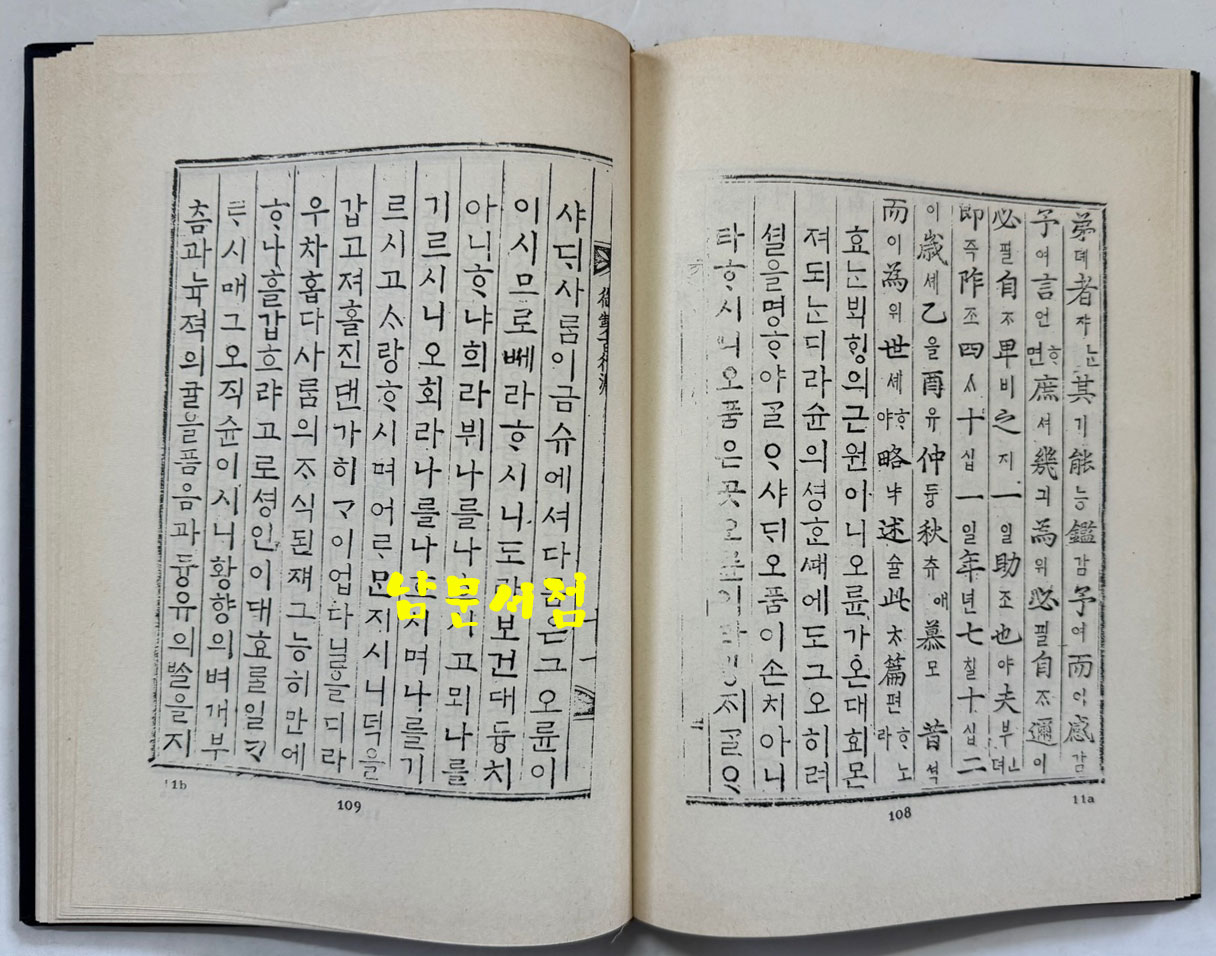 弟뎨者쟈ᄂᆞᆫ其기能능鑑감予여而이感감
予여言언ᄒᆞ면庶셔幾긔爲위必필自ᄌᆞ邇이
必필自ᄌᆞ卑비之지一일助조也야夫부
卽즉昨조四ᄉᆞ十십一일年년七칠十십二
이歲셰乙을酉유仲듕秋츄애慕모昔셕
而이爲위世셰ᄒᆞ야略냑述슐此ᄎᆞ篇편ᄒᆞ노라
효ᄂᆞᆫᄇᆡᆨᄒᆡᆼ의근원이니오륜가온대회몬
져되ᄂᆞᆫ디라슌의셩ᄒᆞᆫ대에도그오히려
셜을명ᄒᆞ야ᄀᆞᆯᄋᆞ샤ᄃᆡ오품이손치아니
타ᄒᆞ시니오품은곳오륜이라ᄆᆡᆼᄌᆡᄀᆞᆯᄋᆞ
11a
108
샤ᄃᆡ사ᄅᆞᆷ이금슈에셔다ᄅᆞᆷ은그오륜이
이시므로ᄡᅦ라ᄒᆞ시니도라보건대듕치
아니ᄒᆞ냐희라뷔나를나ᄒᆞ시고뫼나를
기르시니오회라나를나흐시며나를기
르시고ᄉᆞ랑ᄒᆞ시며어ᄅᆞᄆᆞᆫ지시니덕을
갑고져홀진댄가히ᄀᆞ이업다닐을디라
우차홉다사ᄅᆞᆷ의ᄌᆞ식된쟤그능히만에
ᄒᆞ나흘갑흐랴고로셩인이대효ᄅᆞᆯ일ᄏᆞ
ᄅᆞ시매그오직슌이시니황향의벼개부
츔과뉵젹의귤을픔음과듕유의ᄡᆞᆯ을지
11b
109
남문서점